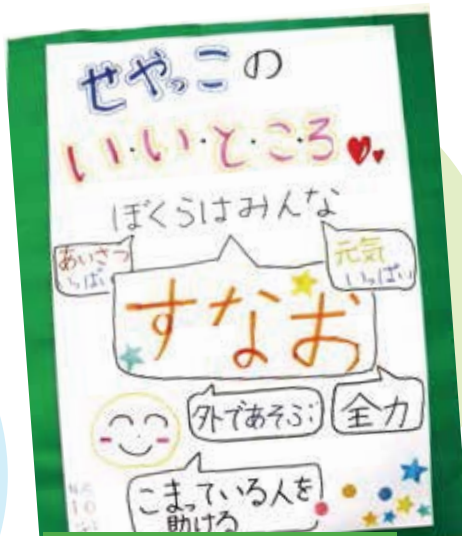 せやっこの
い・い・と・こ・ろ
ぼくらはみんな
あいさつ
いっぱい
元気
いっぱい
すなお
外であそぶ
全力
こまっている人を
助ける